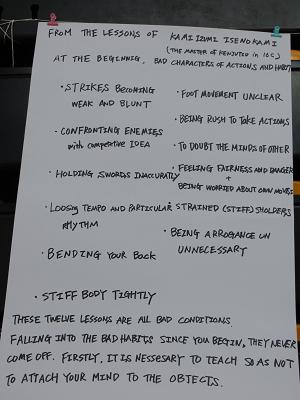 FROM THE LESSONS OF KAMIIZUMI ISENOKAMI
(THE MASTER OF KENJUTSU IN 16C)
AT THE BEGINNIG, BAD CHARACTERS OF ACTIONS AND HABIT
・STRIKES BECOMING
WEAK AND BLUNT
・CONFRONTING ENEMIES
with competitive IDEA
・HOLDING SWORDS INACCURATLY
・LOOSING TEMPO AND PARTICULAR
RHYTHM
・BENDING YOUR BACK
・STIFF BODY TIGHTLY
・FOOT MOVEMENT UNCLEAR
・BEING RUSH TO TAKE ACTIONS
・TO DOUBT THE MINDS OF OTHER
・FEELING FAIRNESS AND DANGER
+
BEING WORRIED ABOUT OWN MOVES
STRAINED (STIFF) SHOLDERS
・BEING ARROGANCE UN
UNNECESSARY
THESE TWELVE LESSONS ARE ALL BAD CONDITIONS.
FALLING INTO THE BAD HABITS SINCE YOU BEGIN, THEY NEVER
COME OFF. FIRSTLY, IT IS NESSESARY TO TEACH SO AS NOT
TO ATTACH YOUR MIND TO THE OBJECTS.